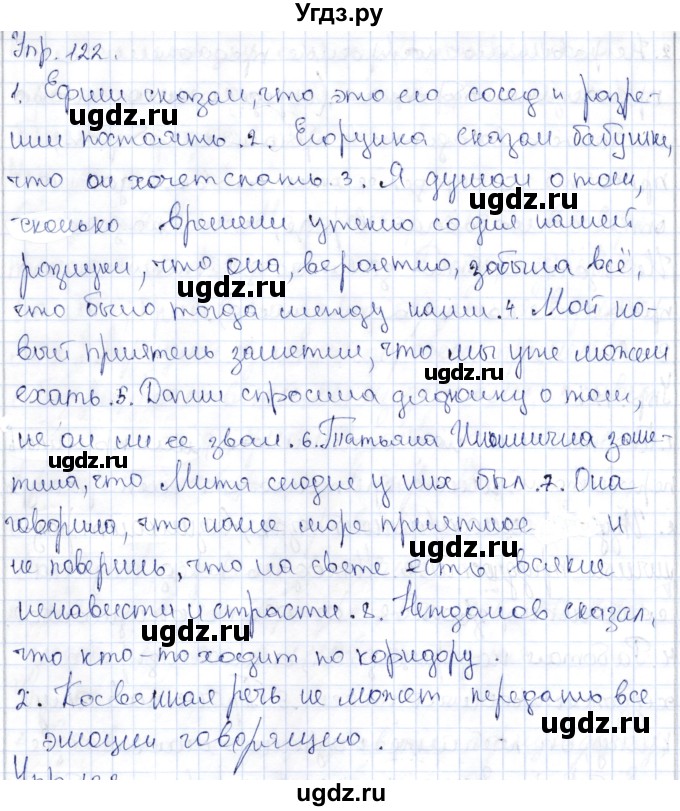 Угдз.ру
Упр. 122.
1. Ефим сказал, что это его сосед и разре-
шил постоять. 2. Егорушка сказал бабушке,
что он хочет спать. 3. Я думал о том,
сколько времени утекло со дня нашей
разлуки, что она, вероятно, забыла всё,
что было тогда между нами. 4. Мой но-
вый приятель заметил, что мы уже можем
ехать. 5. Даши спросила дядюшку о том,
не он ли ее звал. 6. Татьяна Ильинична заме-
тила, что Митя сегодня у них был. 7. Она
говорила, что наше море приятное и
не поверишь, что на свете есть всякие
ненависти и страсти. 8. Нежданов сказал,
что кто-то ходит по коридору.
2. Косвенная речь не может передать все
эмоции говорящего.
ugdz.ru
ugdz.ru
ugdz.ru
ugdz.ru
ugdz.ru
ugdz.ru
ugdz.ru
ugdz.ru
ugdz.ru
ugdz.ru
ugdz.ru